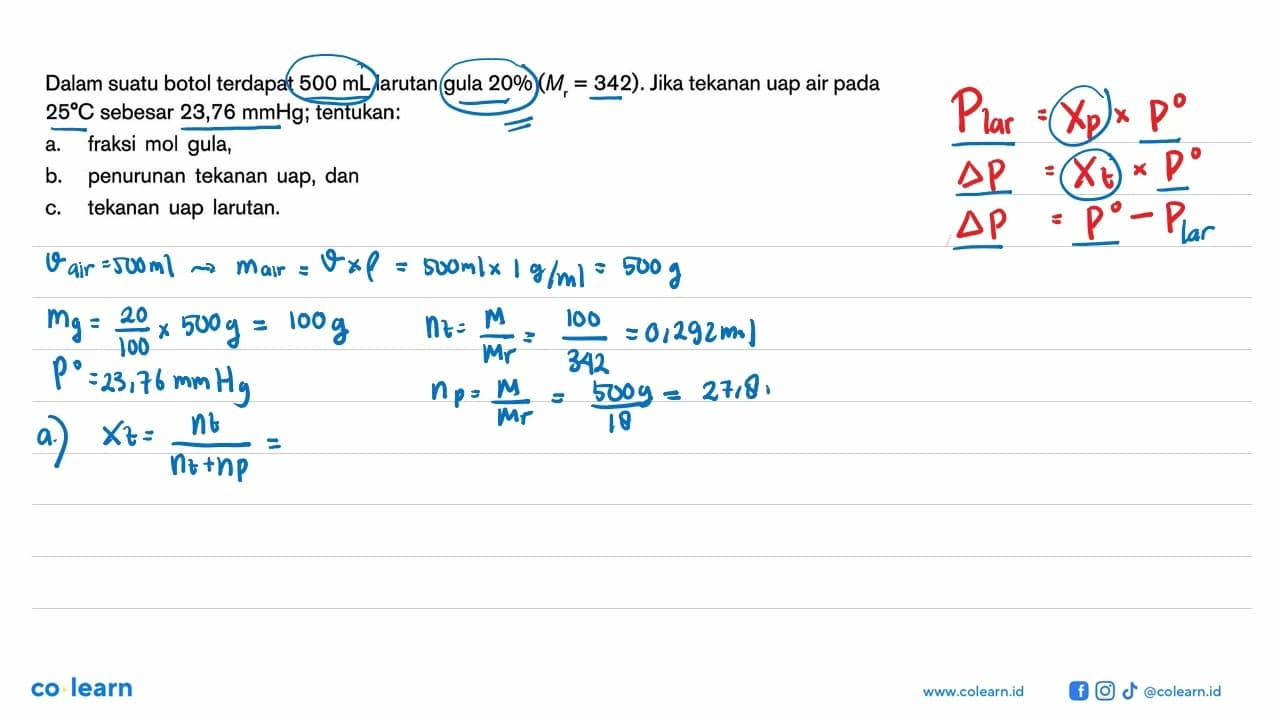 Dalam suatu botol terdapat 500 mL larutan gula 20% (Mr = 342). Jika tekanan uap air pada
25°C sebesar 23,76 mmHg; tentukan:
a. fraksi mol gula,
b. penurunan tekanan uap, dan
c. tekanan uap larutan.
Plar = Xp × P°
ΔP = Xt × P°
ΔP = P° - Plar
v air = 500 ml → m air = v × ρ = 500 ml × 1 g/ml = 500 g
mg = 20/100 × 500 g = 100 g
nt = M/Mr = 100/342 = 0,292 mol
P° = 23,76 mmHg
np = M/Mr = 500 g/18 = 27,8
a.) Xt = nt/nt + np =
co learn
www.colearn.id
@colearn.id